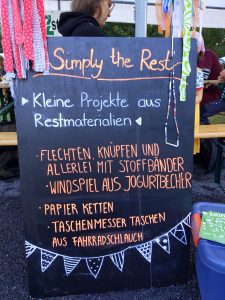 Simply the Rest
Kleine Projekte aus
Restmaterialien
· FLECHTEN, KNÜPFEN UND
ALLERLEI MIT STOFFBÄNDER
· WINDSPIEL AUS JOGURTBECHER
· PAPIER KETTEN
· TASCHENMESSER TASCHEN
AUS FAHRRADSCHLAUCH